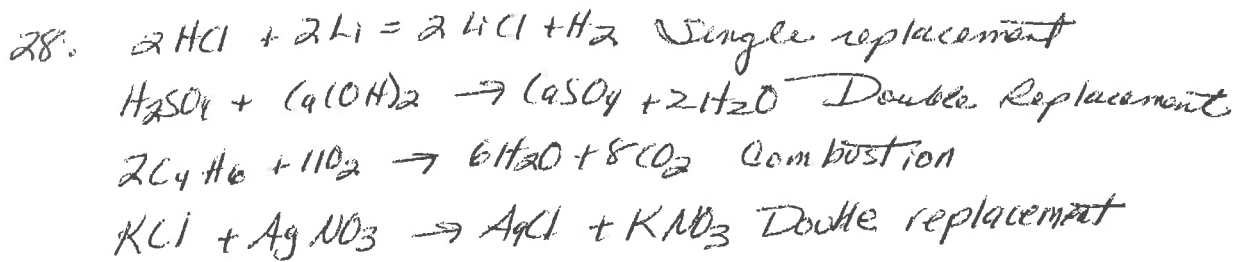 28. 2 HCl + 2 Li = 2 LiCl + H2 Single replacement
H2SO4 + Ca(OH)2 → CaSO4 + 2H2O Double Replacement
2C4H6 + 11O2 → 6H2O + 8CO2 Combustion
KCl + AgNO3 → AgCl + KNO3 Double replacement